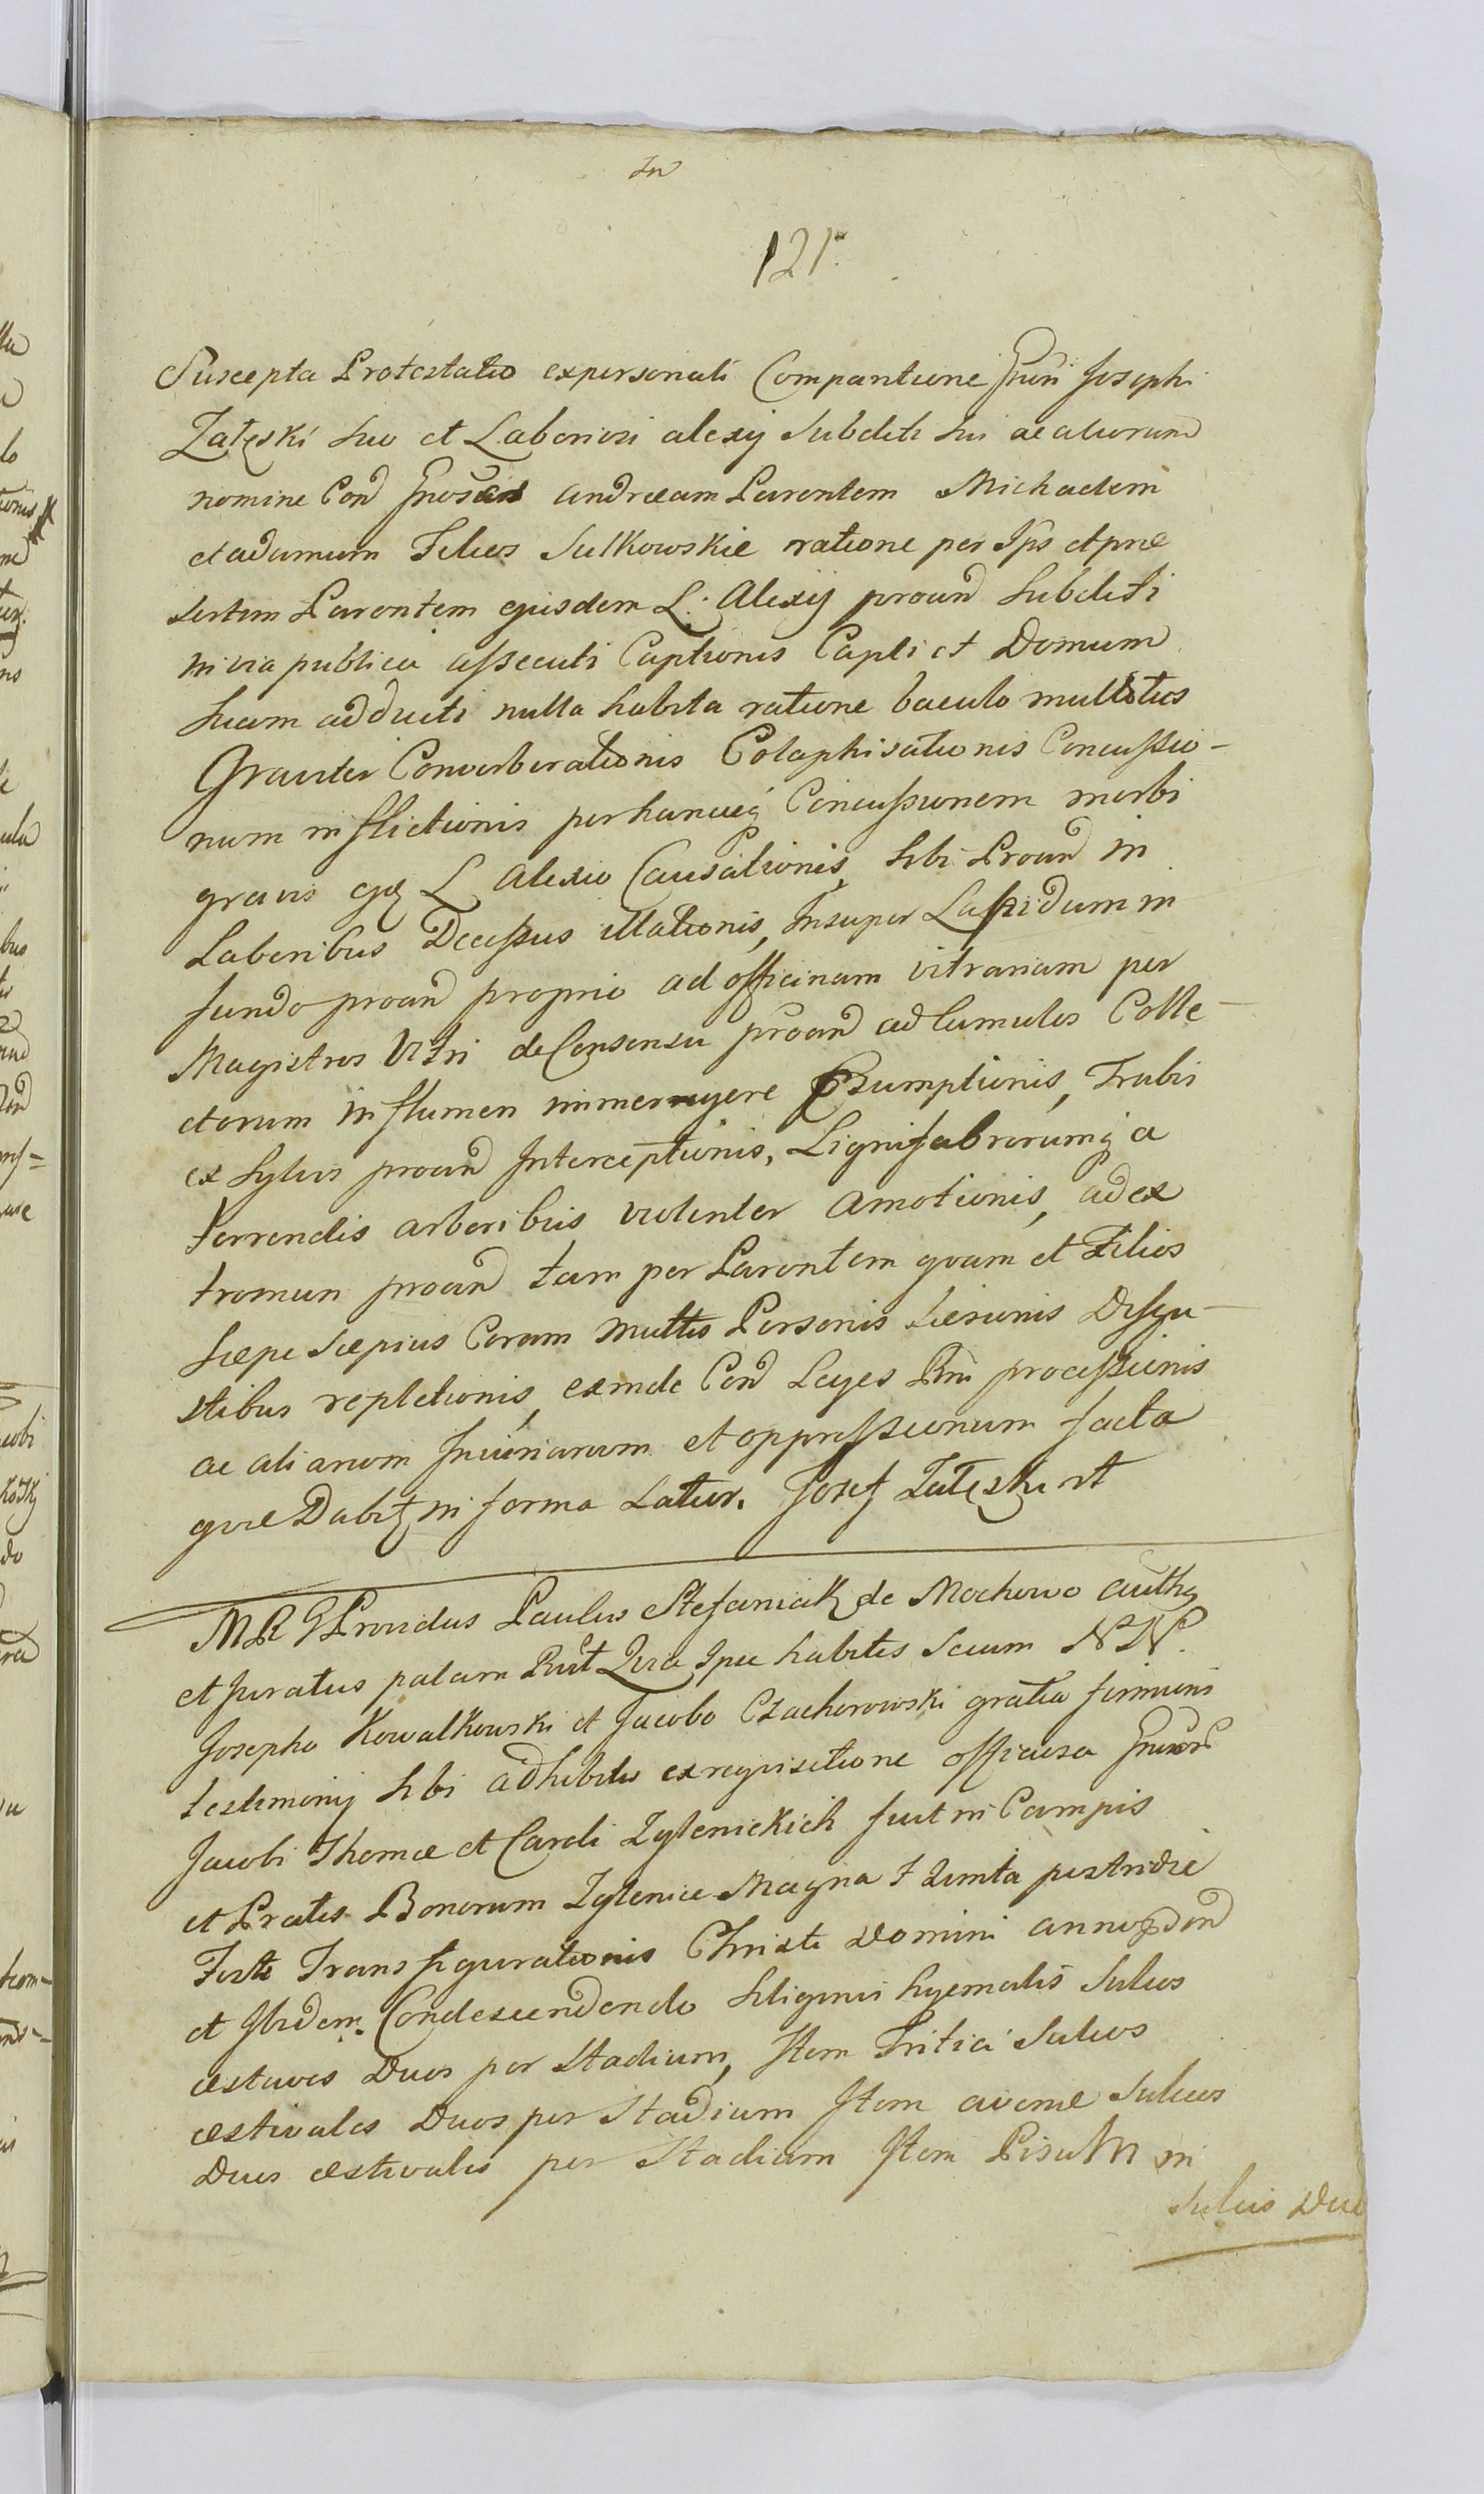 In
121.
Suscepta Protestatio expersonali Comparitione Gnsi Josephi
Załęski suo et Laboriosi alexij Subditi sui ac aliorum
nomine Con Gnosos andream Parentem Michaelem
et adamum Filios Sulkowskie ratione per Ips et præ
sertim Parentem ejusdem L. Alexij proan Subditi
in via publica assecuti Captionis Capti et Domum
suam adducti nulla habita ratione baculo multoties
Graviter Converberationis Colaphisationis Concussio-
num inflictionis perhancq Concussionem morbi
gravis eq L Alexio Causationis, sibi Proan in
Laboribus Decessus illationis, Insuper Lapidum in
fundo proan proprio ad officinam vitrariam per
Magistros Vitri de Consensu proan ad Cumulos Colle-
ctorum in flumen immergere Presumptionis, Trabis
ex Sylvis proan Interceptionis, Lignifabrorumq a
terrendis arboribus violenter amotionis, ad ex
tremum proan tam per Parentem quam et Filios
sæpe sæpius Coram multis Personis Læsionis Disgu-
stibus repletionis, exinde Con Leges Rni processionis
ac aliarum Injuriarum et oppressionum facta
quæ Dabitz in forma Latior. Jozef Załęski st
MRG Providus Paulus Stefaniak de Mochowo auth
et Juratus palam Rust Quia Ipse habitis secum NN.
Josepho Kowalkowski et Jacobo Czachorowski gratia firmioris
testimonij sibi adhibitis ex requisitione officiosa Gnsor
Jacobi Thomæ et Caroli Zglenickich fuit in Campis
et Pratis Bonorum Zglenice Magna F Quinta postridie
Festi Transfigurationis Christi Domini anno
et Ibidem Condescendendo Siliginis hyemalis Sulcos
æstivos Duos per Stadium, Item Tritici Sulcos
æstivales Duos per Stadium Item avenæ Sulcos
Duos æstivales per Stadium Item Pisum in
Sulcis Du